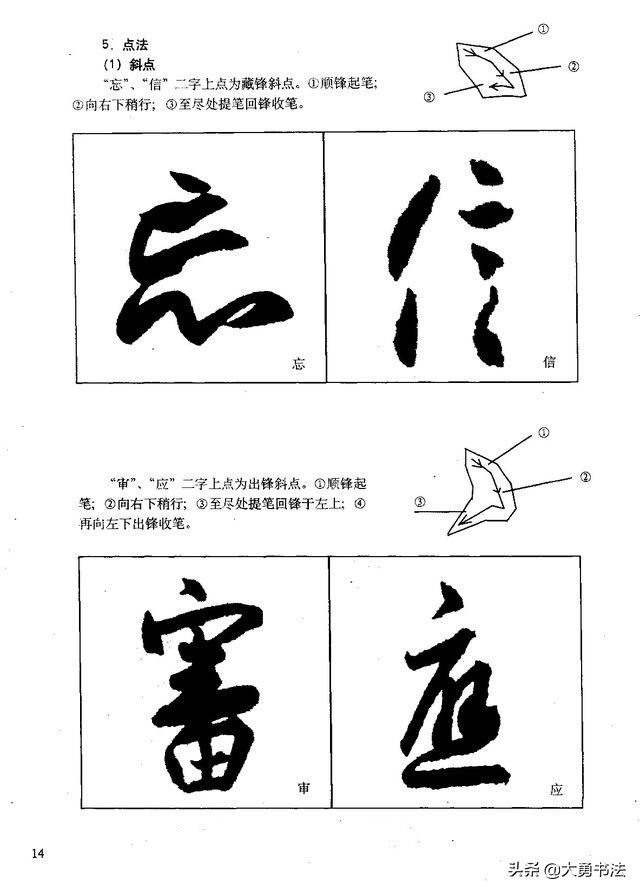 5．点法
（1）斜点
“忘”、“信”二字上点为藏锋斜点。①顺锋起笔；
②向右下稍行；③至尽处提笔回锋收笔。
①
②
③
忘 信
忘
信
“审”、“应”二字上点为出锋斜点。①顺锋起
笔；②向右下稍行；③至尽处提笔回锋于左上；④
再向左下出锋收笔。
①
②
③
審 應
审
应
14
头条 @大勇书法